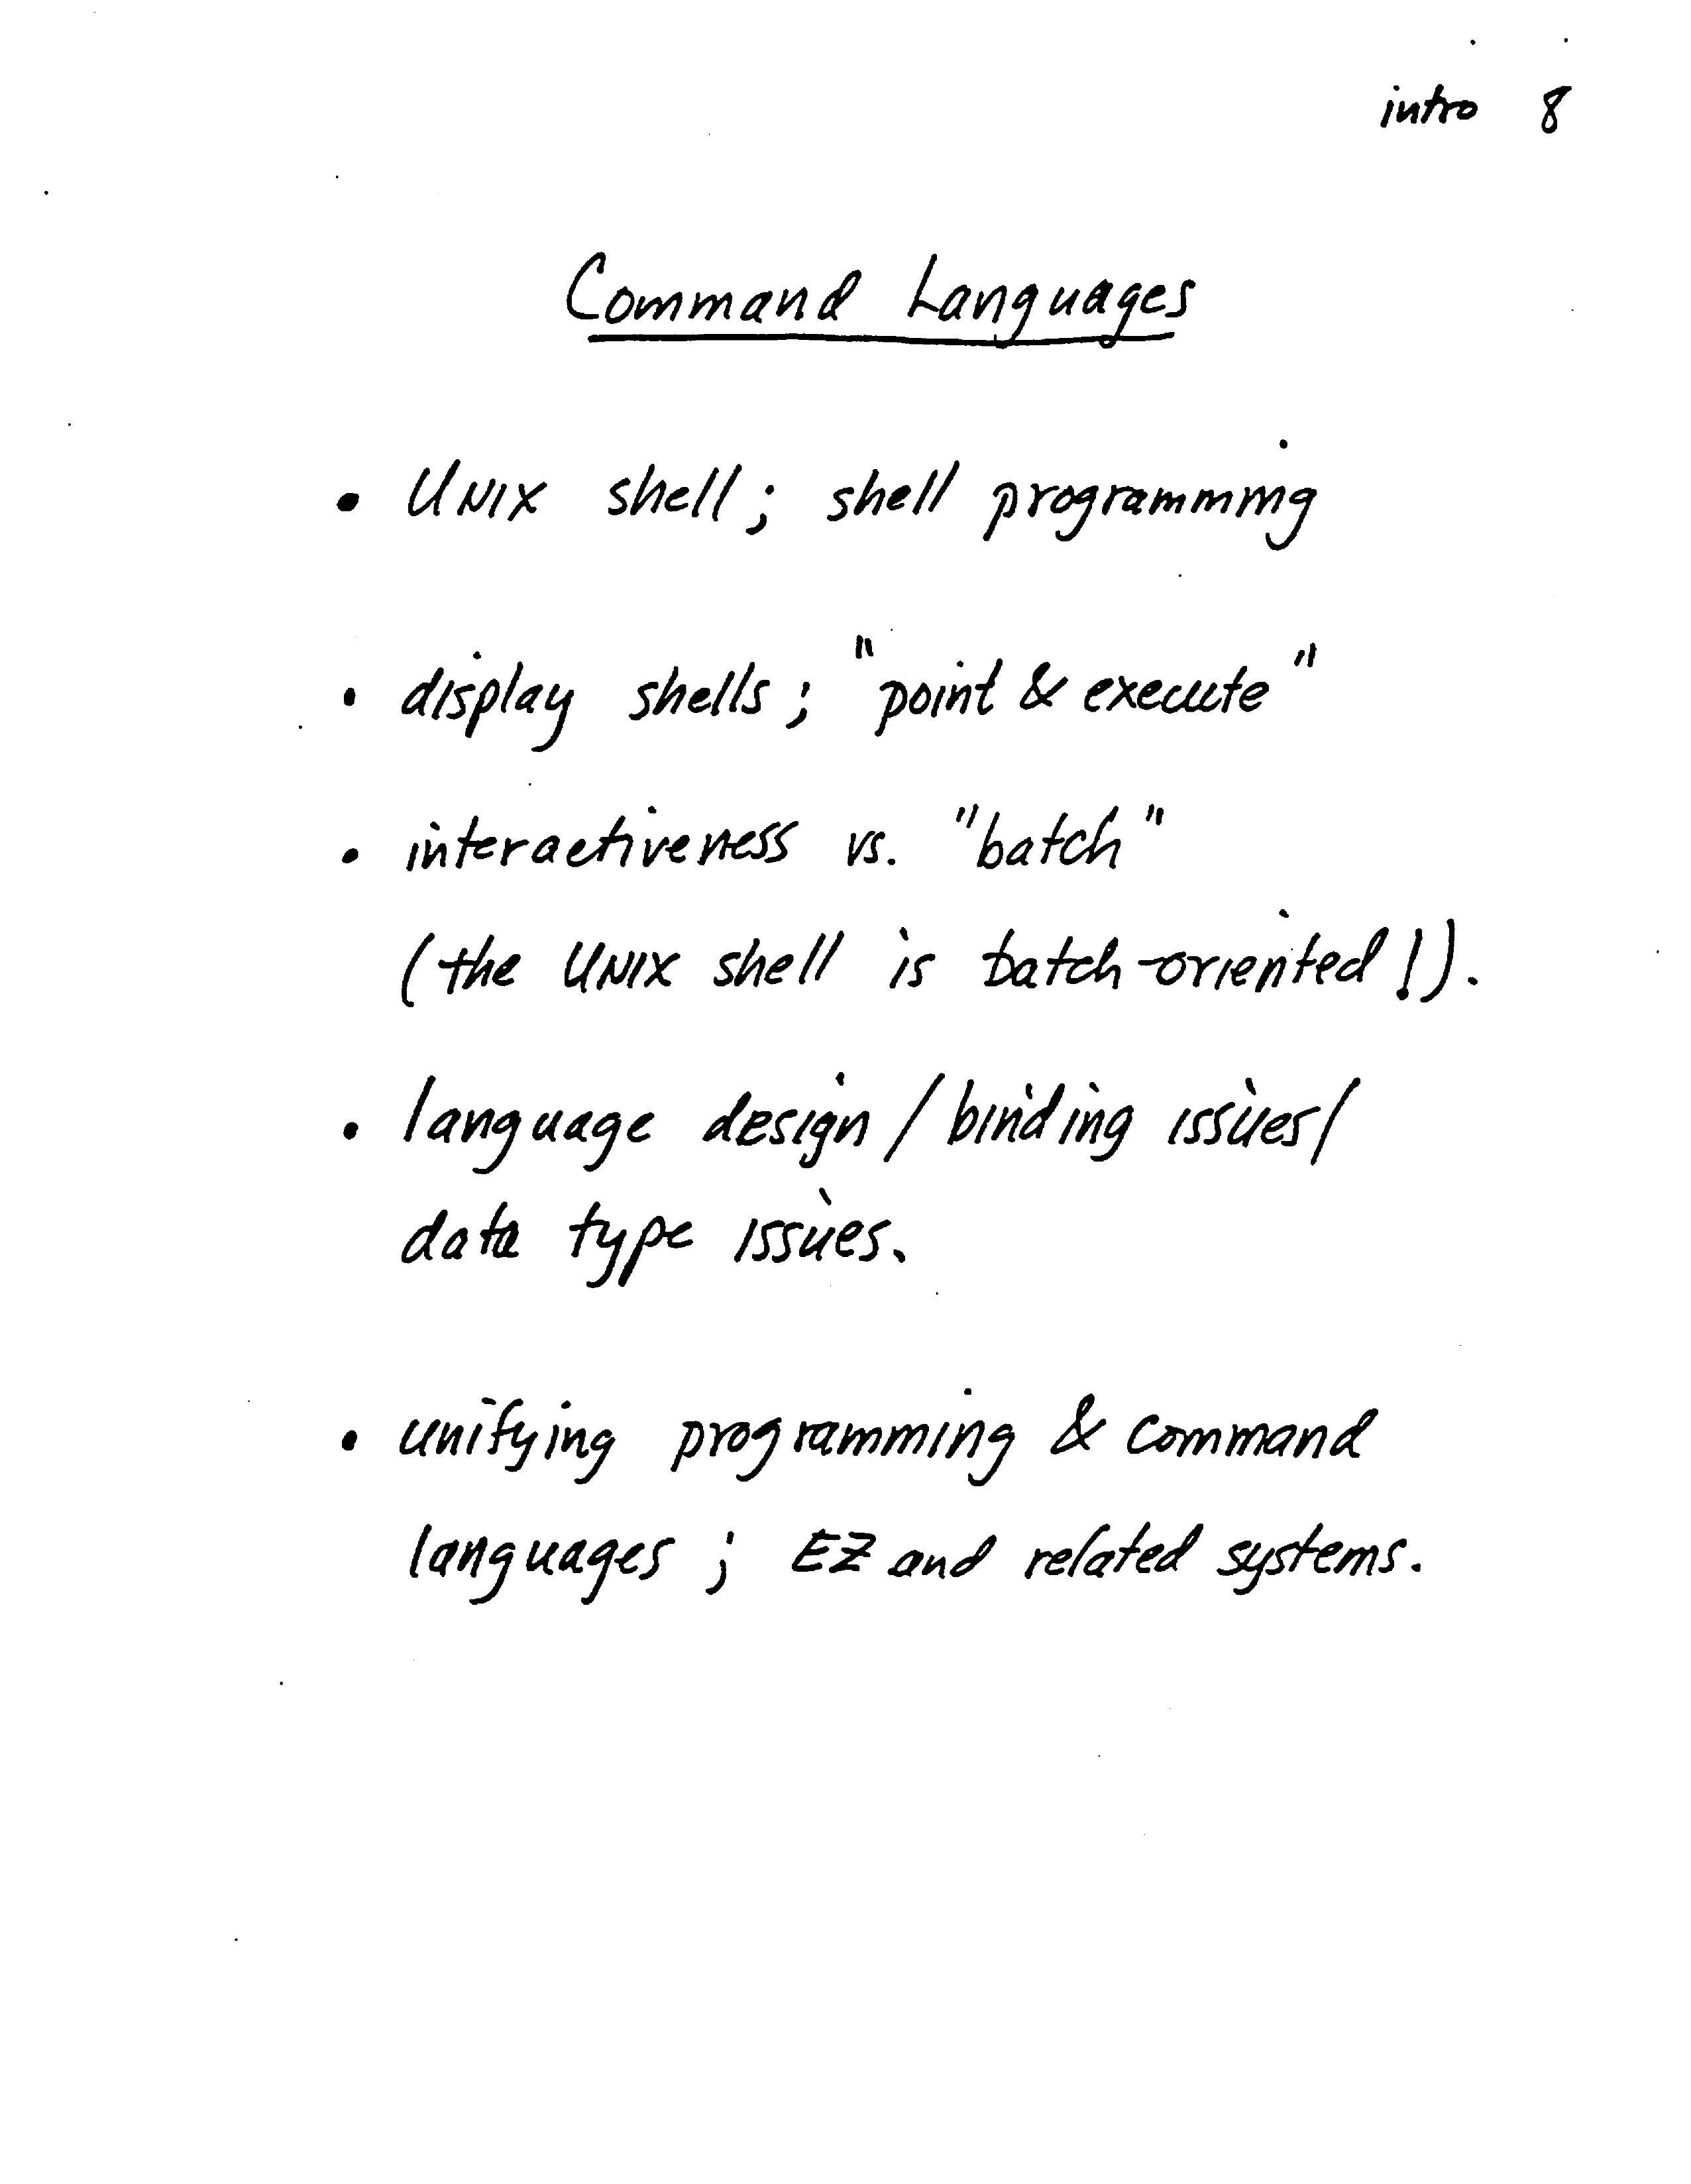 intro 8
Command Languages
• UNIX shell; shell programming
• display shells; "point & execute"
• interactiveness vs. "batch"
(the UNIX shell is batch-oriented!).
• language design / binding issues/
data type issues.
• unifying programming & command
languages; EZ and related systems.